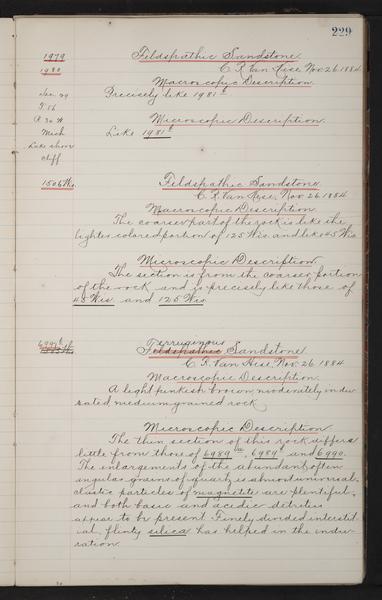 229
1979
Feldspathic Sandstone
1980
C. R. Van Hise, Nov. 26 1884.
Macroscopic Description.
Sec 29
Precisely like 1981
T 56
R 30 W
Microscopic Description.
Mich
Like 1981
Lake shore
cliff
1506 Wis.
Feldspathic Sandstone
C. R. Van Hise, Nov. 26 1884
Macroscopic Description
The coarser part of the rock is like the
lighter colored portion of 125 Wis. and like 45 Wis
Microscopic Description
The section is from the coarser portion
of the rock and is precisely like those of
45 Wis. and 125 Wis
Ferruginous
Feldspathic Sandstone
C. R. Van Hise, Nov. 26 1884
Macroscopic Description.
A light pinkish brown moderately indu-
rated medium grained rock
Microscopic Description
The thin section of this rock differs
little from those of 6989, 6989 and 6990.
The enlargements of the abundant, often
angular grains of quartz is almost universal.
clastic particles of magnetite are plentiful,
and both basic and acidic detritus
appear to be present. Finely divided interstit-
ial, flinty silica has helped in the indu-
ration.